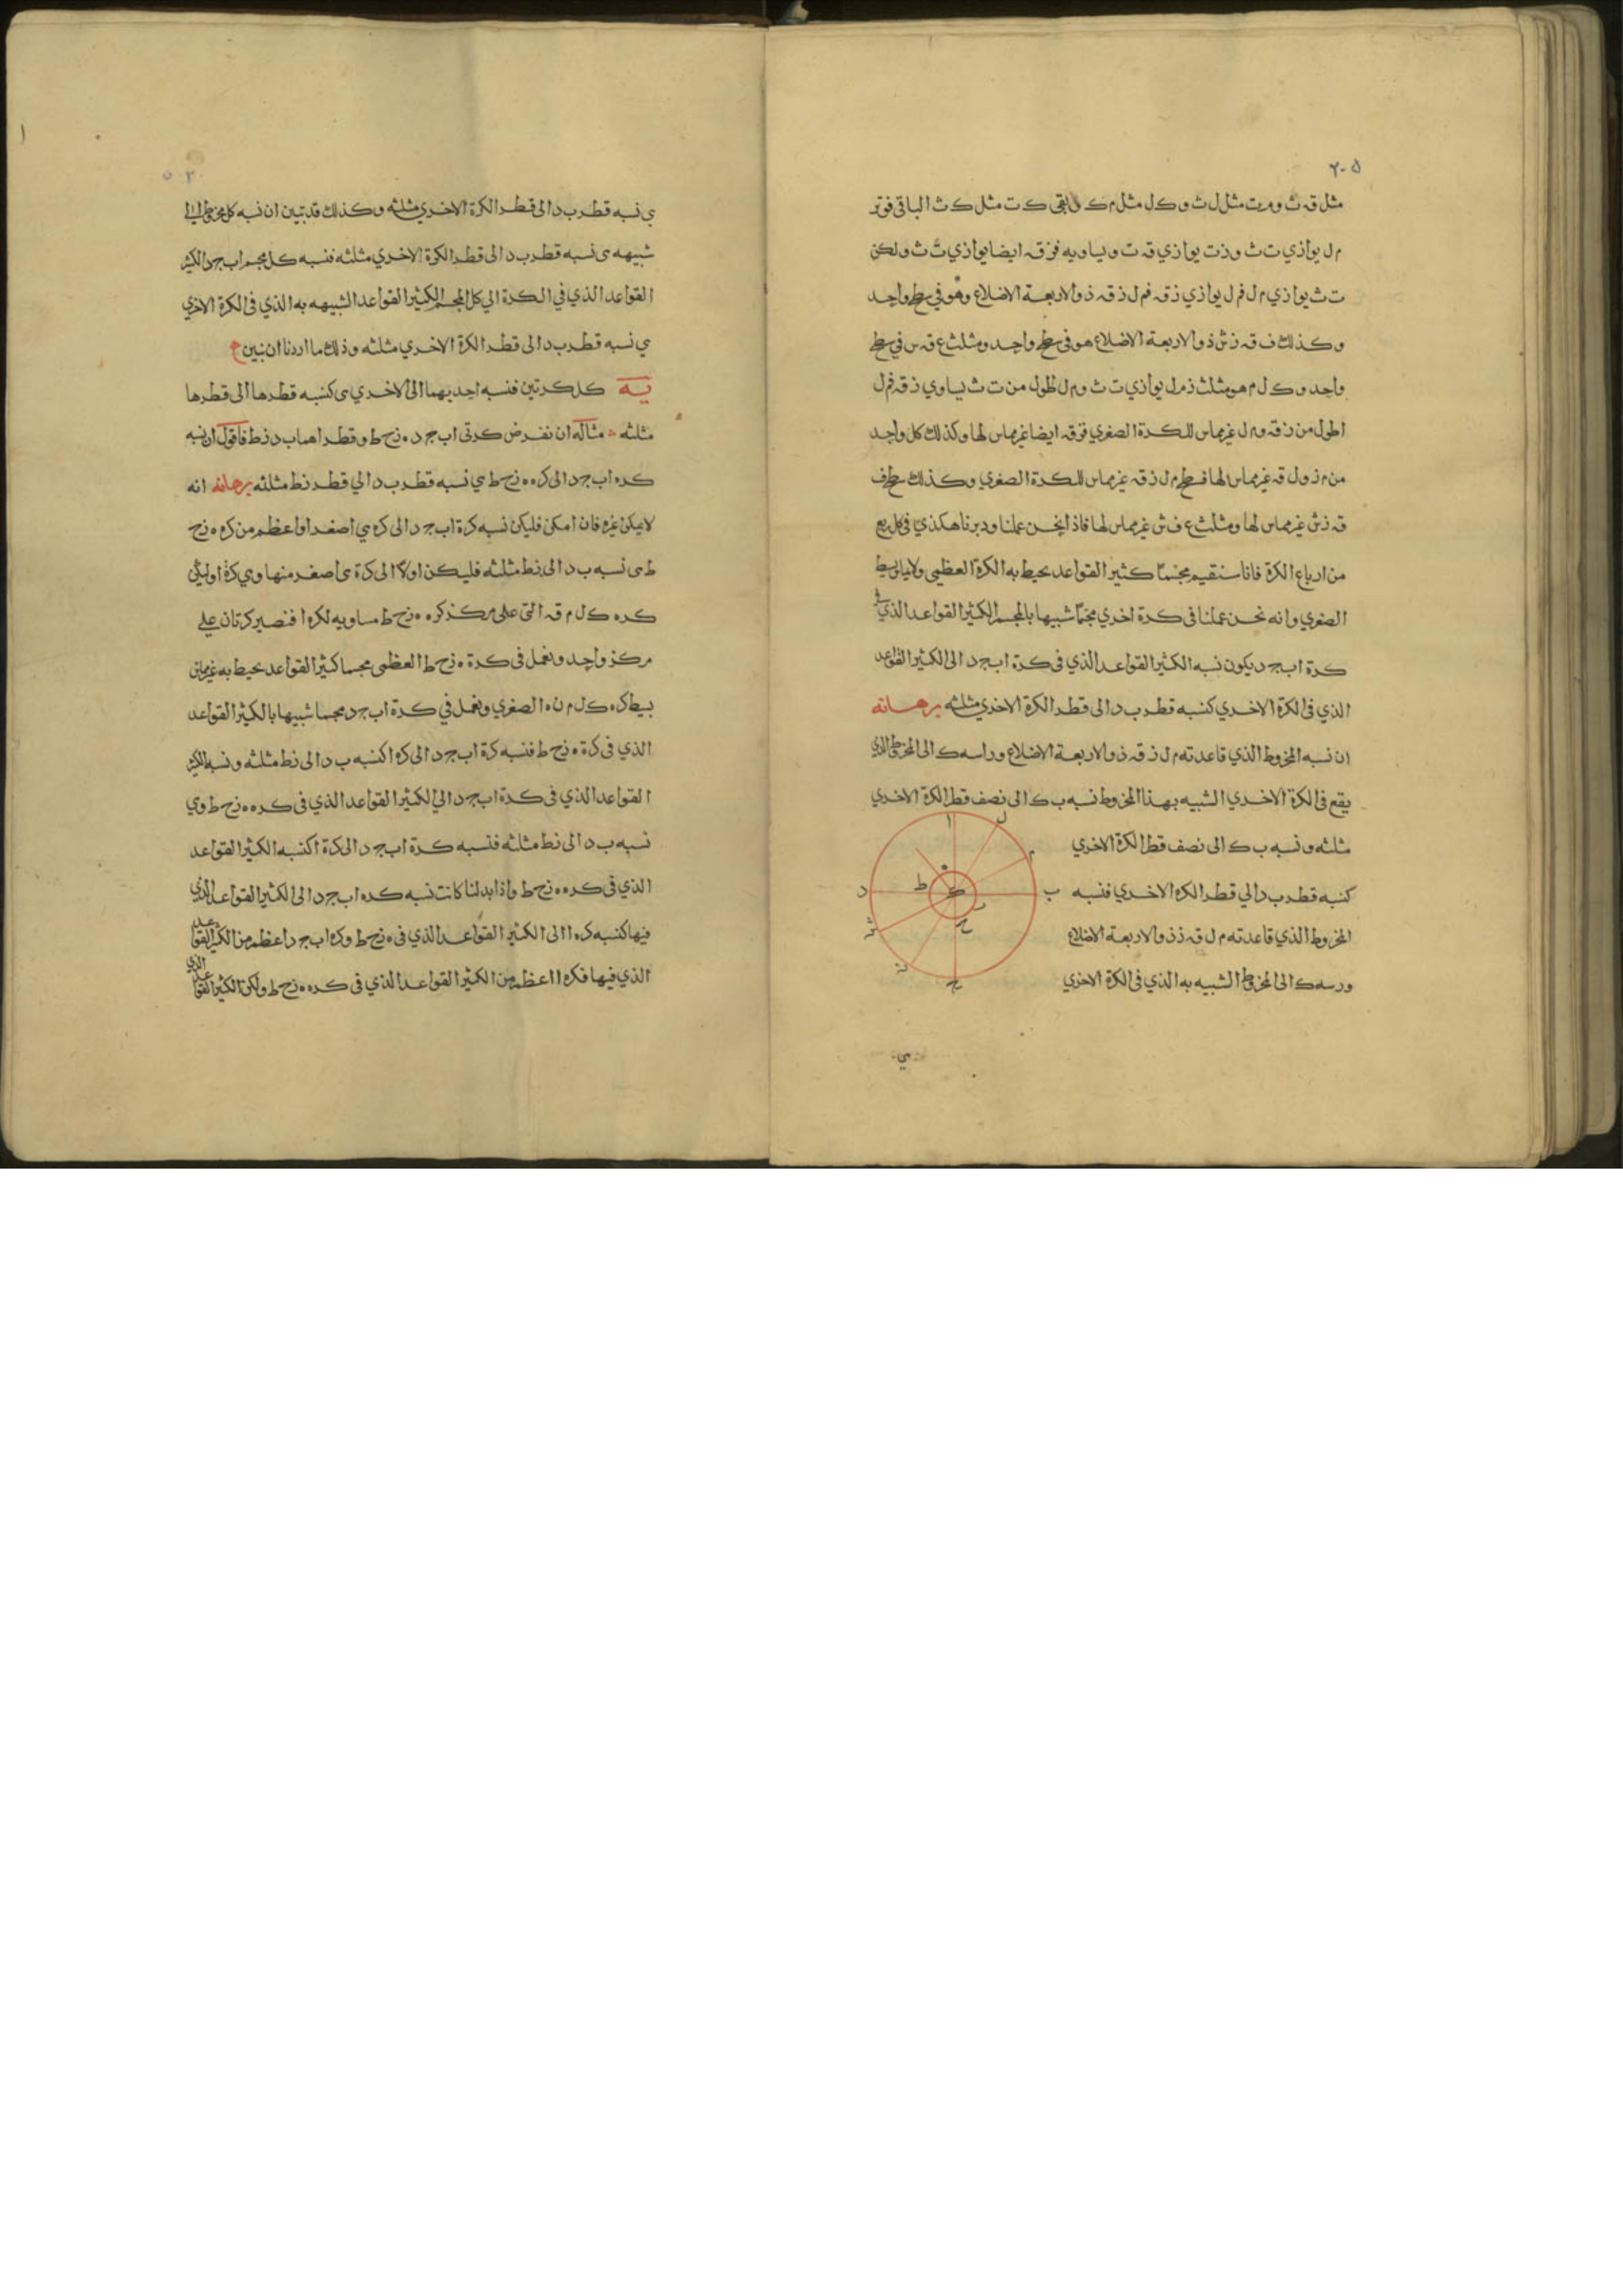 ٢٠٥
مثل قه ث و م ت مثل ل ث و ك ل مثل م ك يبقى ك ت مثل ك ث الباقي فوتر
م ل يوازي ت ث و ز ت يوازي قه ت و يساويه فز قه ايضا يوازي ت ث ولكن
ت ث يوازي م ل فم ل يوازي ز قه فم ل ز قه ذو الاربعة الاضلاع وهو في سطح واحد
وكذلك ف قه ز ش ذو الاربعة الاضلاع هو في سطح واحد ومثلث ع ف س في سطح
واحد و ك ل م هو مثلث ز م ل يوازي ت ث و م ل اطول من ت ث يساوي ز قه فم ل
اطول من ز قه و م ل غير مماس للكرة الصغرى فز قه ايضا غير مماس لها وكذلك كل واحد
من م ز و ل قه غير مماس لها فسطح م ل ز قه غير مماس للكرة الصغرى وكذلك سطح ف
قه ز ش غير مماس لها ومثلث ع ف ش غير مماس لها فاذا نحن عملنا ودبرنا هكذى في كل ربع
من ارباع الكرة فانا سنقيم مجسما كثير القواعد يحيط به الكرة العظمى ولا يماس بسيط
الصغرى وانه نحن عملنا في كرة اخرى مجسما شبيها بالمجسم الكثير القواعد الذي في
كرة ا ب ج د يكون نسبه الكثير القواعد الذي في كرة ا ب ج د الى الكثير القواعد
الذي في الكرة الاخرى كنسبه قطر ب د الى قطر الكرة الاخرى مثلثه برهانه
ان نسبه المخروط الذي قاعدته م ل ز قه ذو الاربعة الاضلاع وراسه ك الى المخروط الذي
يقع في الكرة الاخرى الشبيه بهذا المخروط نسبه ب ك الى نصف قطر الكرة الاخرى
مثلثه و نسبه ب ك الى نصف قطر الكرة الاخرى
كنسبه قطر ب د الي قطر الكره الاخرى فنسبه
المخروط الذي قاعدته م ل قه ز ذو الاربعة الاضلاع
ورسه ك الى المخروط الشبيه به الذي في الكرة الاخرى
ا
ل
م
ب
د
ط
ه
ك
ز
ح
ش
ن
ج
ي
ي نسبه قطر ب د الى قطر الكرة الاخرى مثلثه وكذلك قد تبين ان نسبه كل مخروط الى
شبيهه ى نسبه قطر ب د الى قطر الكرة الاخرى مثلثه فنسبه كل مجسم ا ب ج د الكثير
القواعد الذي في الكرة الى كل المجسم الكثير القواعد الشبيهه به الذي في الكرة الاخرى
ي نسبه قطر ب د الى قطر الكرة الاخرى مثلثه وذلك ما اردنا ان نبين
يه كل كرتين فنسبه احديهما الى الاخرى ى كنسبه قطرها الى قطرها
مثلثه مثاله ان نفرض كرتى ا ب ج د ه ز ح ط و قطراهما ب د ز ط فاقول ان نسبه
كره ا ب ج د الى كره ه ز ح ط ي نسبه قطر ب د الي قطر ز ط مثلثه برهانه انه
لا يمكن غيره فان امكن فليكن نسبه كرة ا ب ج د الى كره ي اصغر او اعظم من كره ه ز ح
ط ى نسبه ب د الى ز ط مثلثه فليكن اولا الى كرة ى اصغر منها وي كرة ا وليكن
كره ك ل م قه التي على مركز كره ه ز ح ط مساويه لكره ا فتصير كرتان على
مركز واحد ونعمل في كرة ه ز ح ط العظمى مجسما كثير القواعد يحيط به غير مماس
بسيط كره ك ل م ن ه الصغرى ونعمل في كرة ا ب ج د مجسما شبيها بالكثير القواعد
الذي في كرة ه ز ح ط فنسبه كرة ا ب ج د الى كره ا كنسبه ب د الى ز ط مثلثه و نسبه الكثير
القواعد الذي في كرة ا ب ج د الى الكثير القواعد الذي في كره ه ز ح ط وي
نسبه ب د الى ز ط مثلثه فنسبه كرة ا ب ج د الى كرة ا كنسبه الكثير القواعد
الذي في كره ه ز ح ط واذا بدلنا كانت نسبه كره ا ب ج د الى الكثير القواعد الذي
فيها كنسبه كره ا الى الكثير القواعد الذي في ه ز ح ط وكره ا ب ج د اعظم من الكثير القواعد
الذي فيها فكره ا اعظم من الكثير القواعد الذي في كره ه ز ح ط ولكن الكثير القواعد الذي